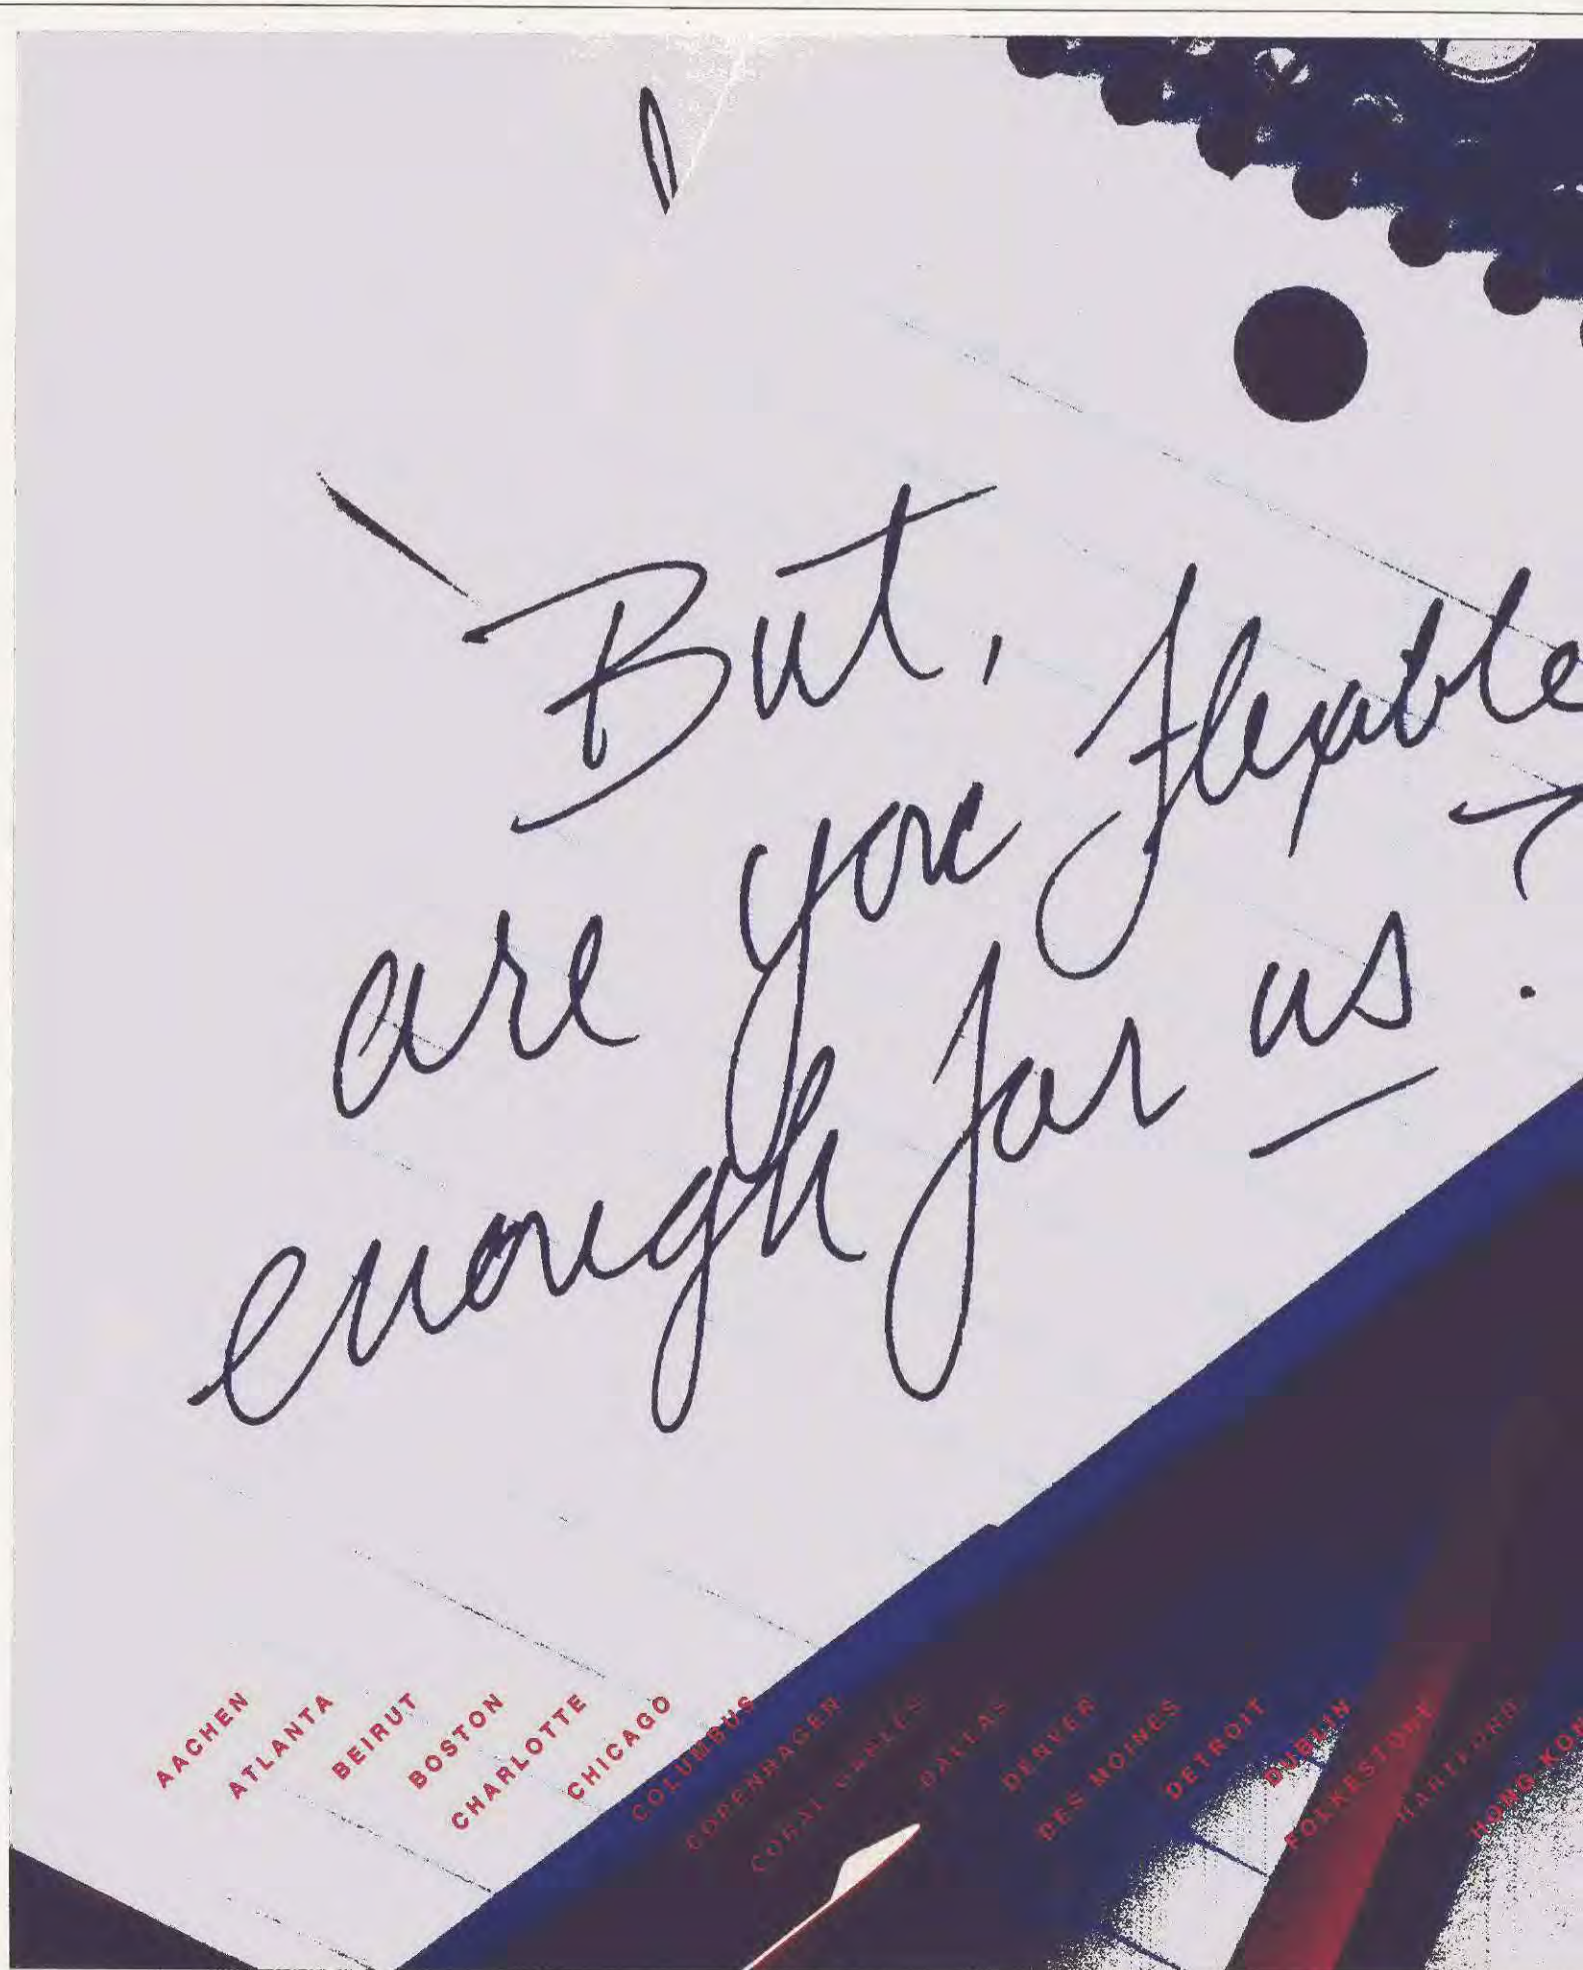 But,
are you flexable
enough for us?
AACHEN
ATLANTA
BEIRUT
BOSTON
CHARLOTTE
CHICAGO
COLUMBUS
COPENHAGEN
CORAL GABLES
DALLAS
DENVER
DES MOINES
DETROIT
DUBLIN
FOLKESTONE
HARTFORD
HONG KON